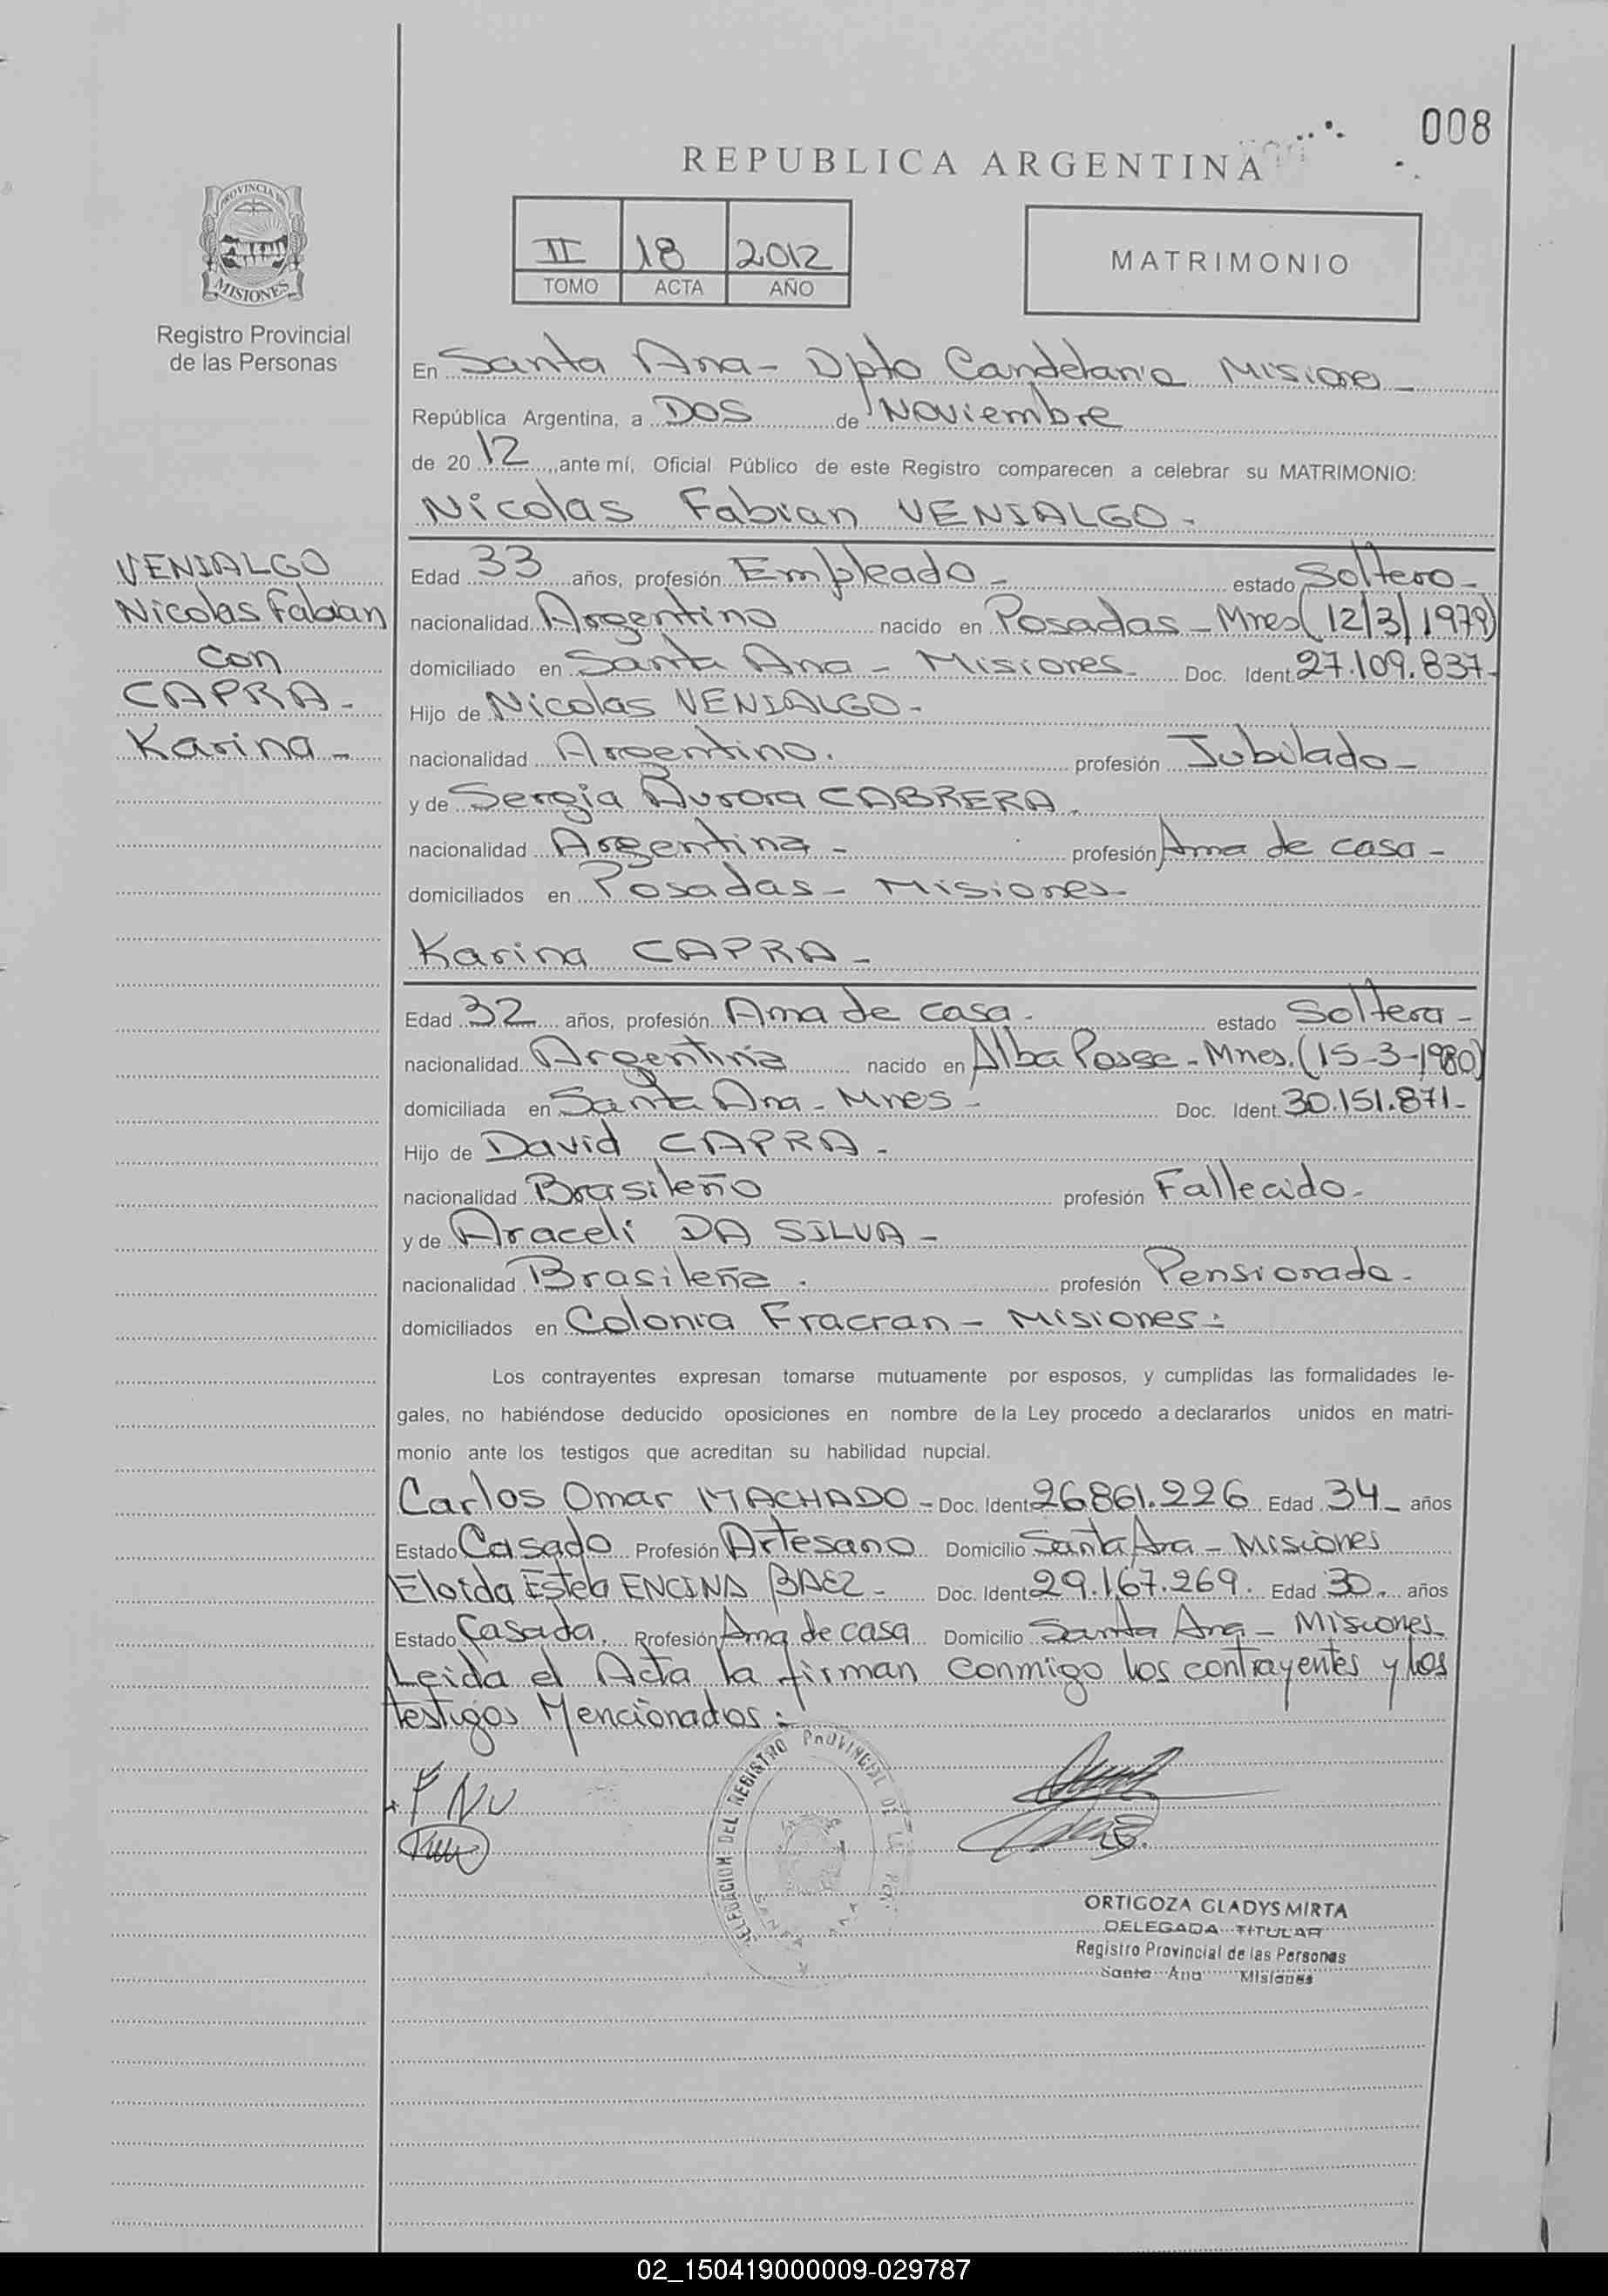 008
REPUBLICA ARGENTINA
PROVINCIA DE
MISIONES
Registro Provincial
de las Personas
II 18 2012
TOMO ACTA AÑO
MATRIMONIO
En Santa Ana - Dpto Candelaria Misiones -
República Argentina, a Dos de Noviembre
de 20 12, ante mí, Oficial Público de este Registro comparecen a celebrar su MATRIMONIO:
Nicolas Fabian VENIALGO -
VENIALGO
Nicolas Fabian
Con
CAPRA -
Karina -
Edad 33 años, profesión Empleado - estado Soltero -
nacionalidad Argentino nacido en Posadas - Mnes (12/3/1979)
domiciliado en Santa Ana - Misiones - Doc. Ident. 27.109.837 -
Hijo de Nicolas VENIALGO -
nacionalidad Argentino. profesión Jubilado -
y de Sergia Aurora CABRERA.
nacionalidad Argentina - profesión Ama de casa -
domiciliados en Posadas - Misiones -
Karina CAPRA -
Edad 32 años, profesión Ama de casa. estado Soltera -
nacionalidad Argentina nacido en Alba Posse - Mnes. (15-3-1980)
domiciliada en Santa Ana - Mnes - Doc. Ident. 30.151.871 -
Hijo de David CAPRA -
nacionalidad Brasileño profesión Fallecido -
y de Araceli DA SILVA -
nacionalidad Brasileña. profesión Pensionada -
domiciliados en Colonia Fracran - Misiones :
Los contrayentes expresan tomarse mutuamente por esposos, y cumplidas las formalidades le-
gales, no habiéndose deducido oposiciones en nombre de la Ley procedo a declararlos unidos en matri-
monio ante los testigos que acreditan su habilidad nupcial.
Carlos Omar MACHADO - Doc. Ident 26.861.226 Edad 34 - años
Estado Casado Profesión Artesano Domicilio Santa Ana - Misiones
Eloida Estela ENCINA BAEZ - Doc. Ident 29.167.269. Edad 30 años
Estado Casada. Profesión Ama de casa Domicilio Santa Ana - Misiones
Leida el Acta la firman conmigo los contrayentes y los
testigos Mencionados :
DELEGACION DEL REGISTRO PROVINCIAL DE LAS PER
ORTIGOZA GLADYS MIRTA
DELEGADA TITULAR
Registro Provincial de las Personas
Santa Ana Misiones
02_150419000009-029787